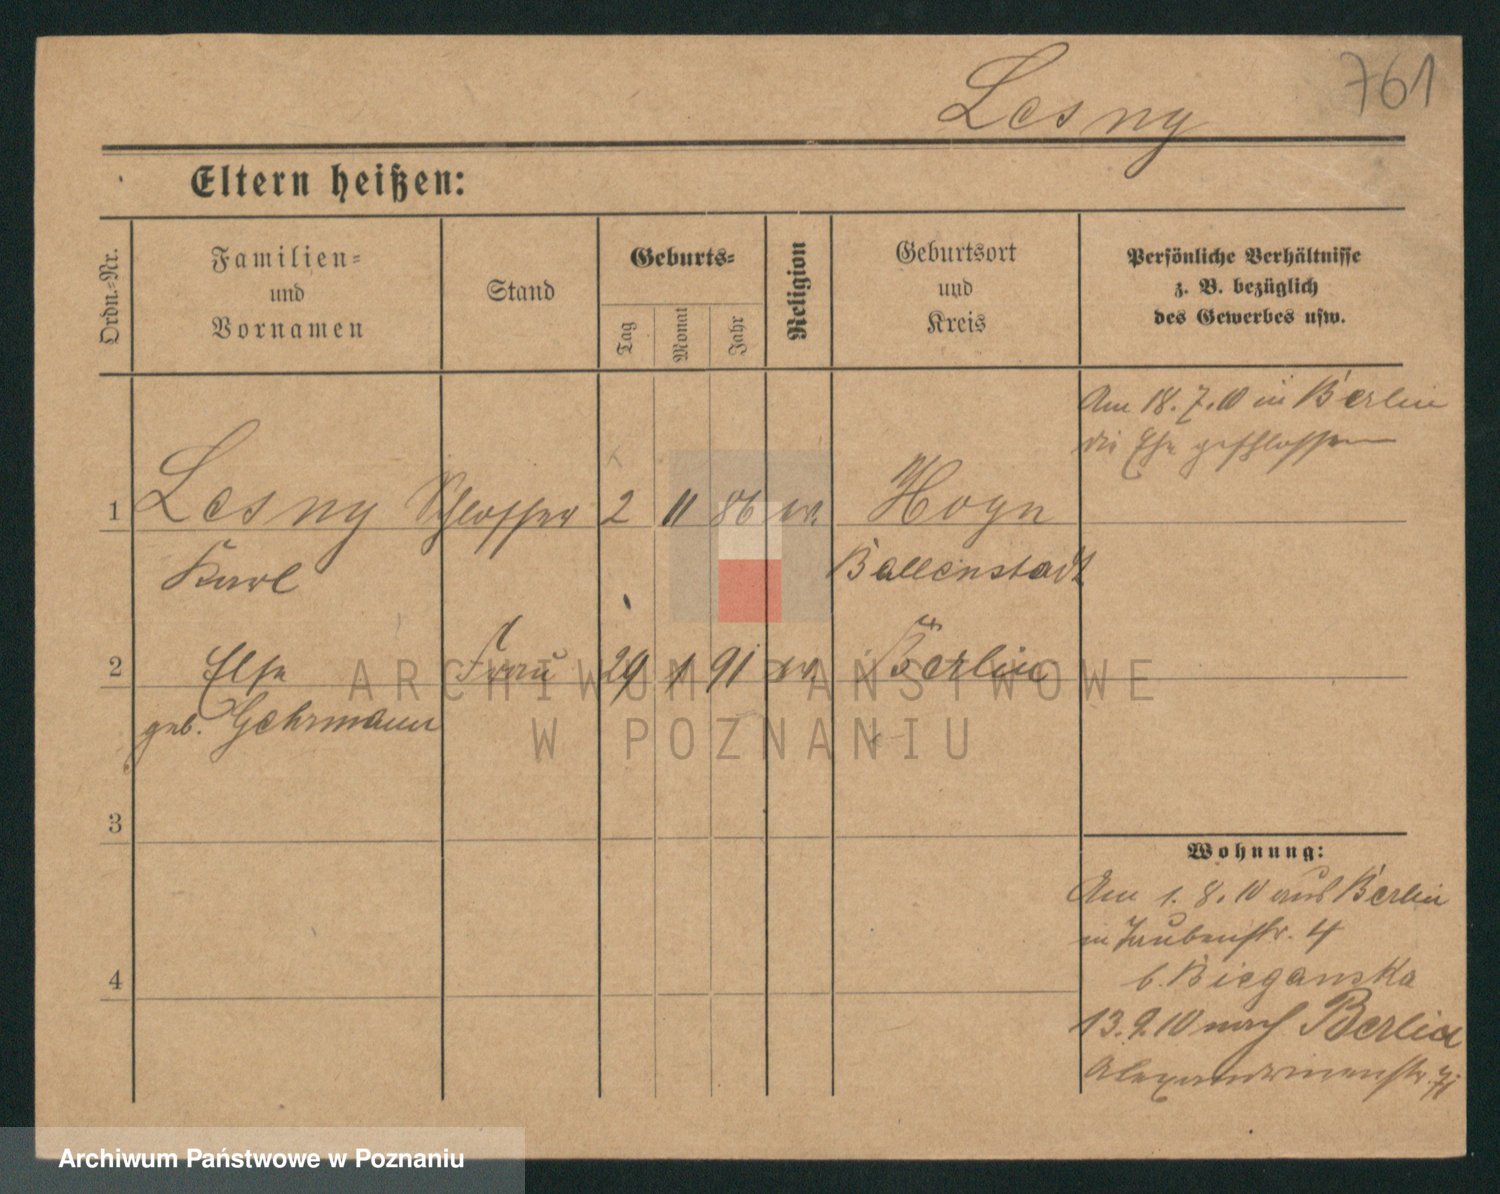 761
Lesny
Eltern heißen:
Ordn.-Nr.
Familien-
und
Vornamen
Stand
Geburts-
Tag
Monat
Jahr
Religion
Geburtsort
und
Kreis
Persönliche Verhältnisse
z. B. bezüglich
des Gewerbes usw.
Am 18.7.10 in Berlin
die Ehe geschlossen
1 Lesny Schlosser 2 11 86 ev. Hoym
Karl Ballenstadt
2 Else Frau 29 1 91 ev. Berlin
geb. Gehrmann
3
4
Wohnung:
Am 1.8.10 aus Berlin
in Taubenstr. 4
b. Bieganska
13.9.10 nach Berlin
Alexandrinenstr.
ARCHIWUM PAŃSTWOWE
W POZNANIU
Archiwum Państwowe w Poznaniu